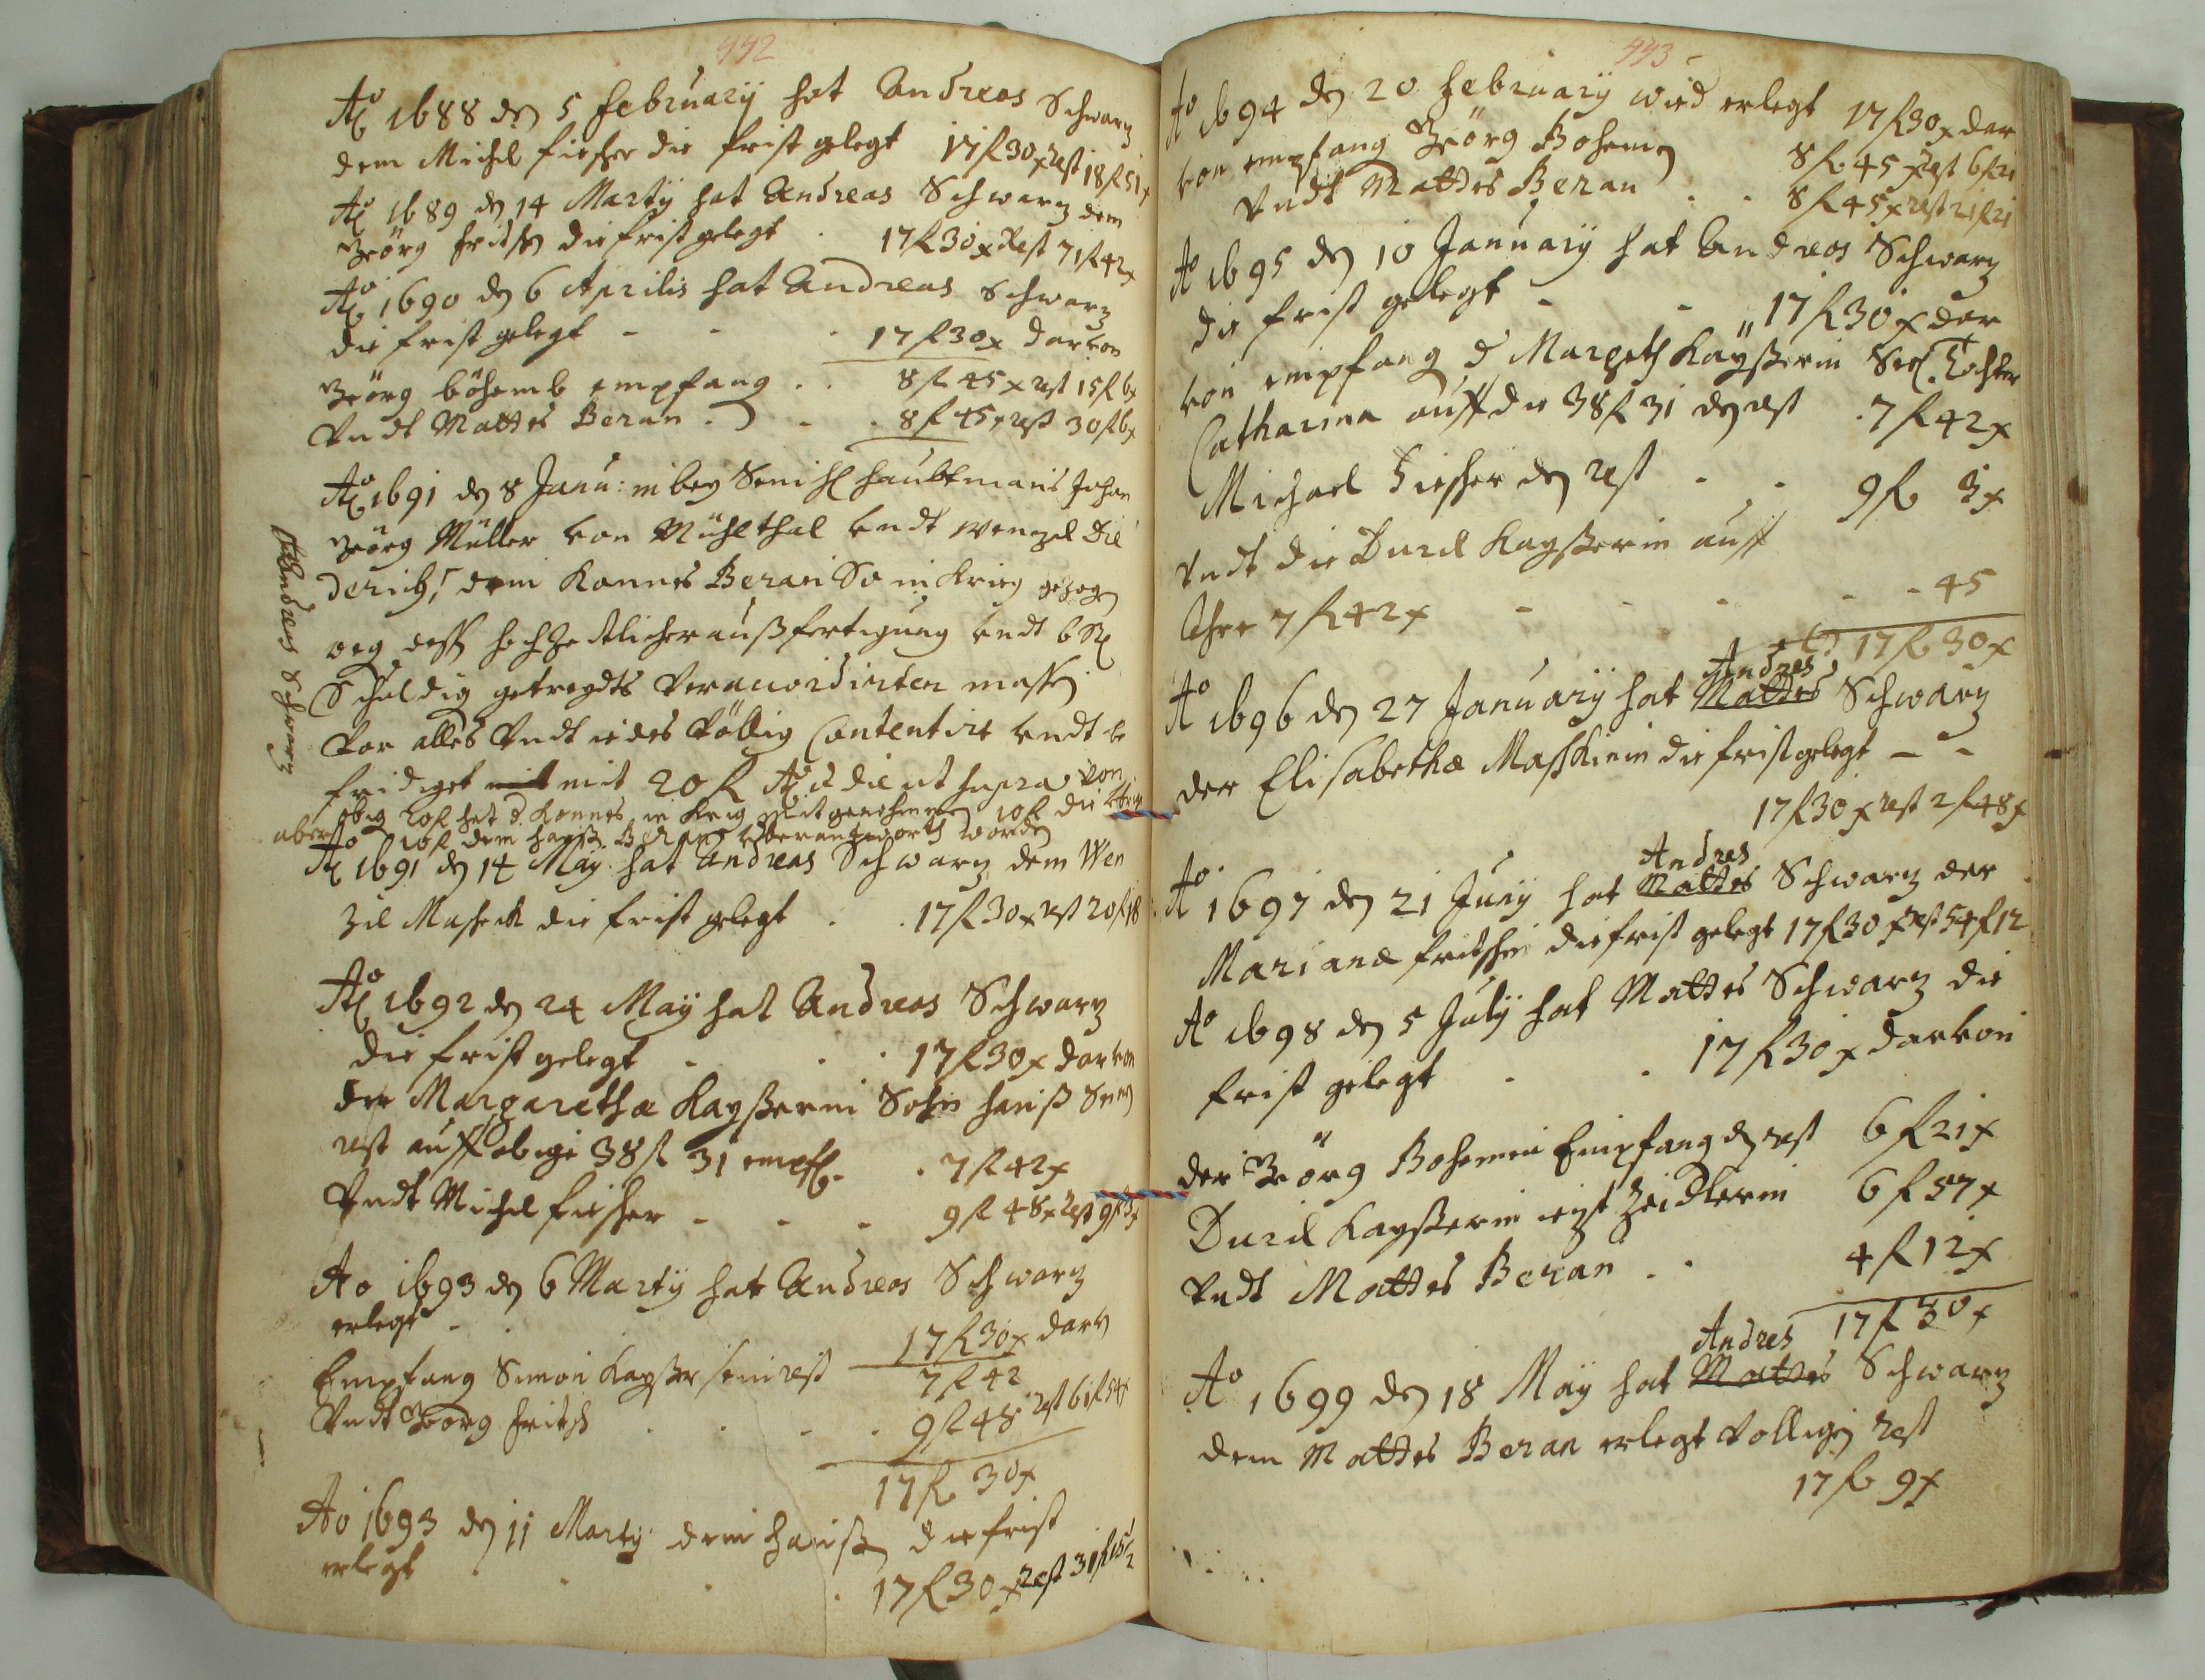 442
Ao 1688 den 5 February hat Andreas Schwarz
dem Michel fischer die frist gelegt 17 fl 30 x Rest 18 fl 51 x
Ao 1689 den 14 Martÿ hat Andreas Schwarz dem
Geörg fritsch die frist gelegt . 17 fl 30 x Rest 71 fl 42 x
Ao 1690 den 6 Aprilis hat Andreas Schwarz
die frist gelegt - - . 17 fl 30 x darvon
Geörg böhemb empfang . . 8 fl 45 x rest 15 fl 6 x
Vndt Mattes Beran . . . 8 fl 45 x rest 30 fl 6 x
Ao 1691 den 8 Janu: in bey haubtmans Johan
Geörg Müller von Mühlthal vndt Wenzel Die
derich, dem Hannes Beran So in Krieg gezogen
weg hochzeitlicher außfertigung vndt 6
Schuldig getreydts massen
Vor alles Vndt iedes völlig Contentirt vndt be
fridiget mit mit 20 fl Ao die ut supra von
obig 20 fl hat d. Hannes in Krieg mitgenohmen 10 fl die
aber 10 fl dem Hanß Beran überantworth worden
Andreas Schwarz
Ao 1691 den 14 Maÿ hat Andreas Schwarz dem Wen
zel Maschek die frist gelegt . . 17 fl 30 x rest 20 fl 18
Ao 1692 den 24 Maÿ hat Andreas Schwarz
die frist gelegt - . . 17 fl 30 x darvon
der Margaretha Kayßerin Sohn hanß
rest auff obige 38 fl 31 empf. . 7 fl 42 x
Vndt Michel fischer - - - 9 fl 48 x Rest 9 fl 3 x
Ao 1693 den 6 Martÿ hat Andreas Schwarz
erlegt - . 17 fl 30 x darv
Empfang Simon Kayßer sein rest 7 fl 42
Vndt Georg fritsch . . . . 9 fl 48 rest 61 fl 54 x
17 fl 30 x
Ao 1693 den 11 Martÿ dem hanßen die frist
erlegt . . . 17 fl 30 x rest 31 fl 15
443
Ao 1694 den 20 February wird erlegt 17 fl 30 x dar
von empfang Geörg Bohemen 8 fl 45 x Rest 6 fl 21
Vndt Mattes Beran . . 8 fl 45 x rest 21 fl 21
Ao 1695 den 10 Januarÿ hat Andreas Schwarz
die frist gelegt - - 17 fl 30 x dar
von empfang d Margeth Kayßerin Seel. Tochter
Catharina auff die 38 fl 31 den rest . 7 fl 42 x
Michael Fischer den rest . . 9 fl 3 x
Vndt die Duril Kayßerin auff
Ihre 7 fl 42 x - - - - - 45
17 fl 30 x
Andres
Ao 1696 den 27 Januarÿ hat Mattes Schwarz
der Elisabetha Maschkin die frist gelegt - -
17 fl 30 x rest 2 fl 48 x
Andres
Ao 1697 den 21 Juny hat Mattes Schwarz der
Mariana fritschin die frist gelegt 17 fl 30 x rest 54 fl 12
Ao 1698 den 5 July hat Mattes Schwarz die
frist gelegt . . 17 fl 30 x darvon
der Geörg Bohemen Empfang den rest 6 fl 21 x
Duril Kayßerin iezt Zeidlerin 6 fl 57 x
Vndt Mattes Beran . . 4 fl 12 x
17 fl 30 x
Andres
Ao 1699 den 18 Maÿ hat Mattes Schwarz
dem Mattes Beran erlegt Völligen rest
17 fl 9 x